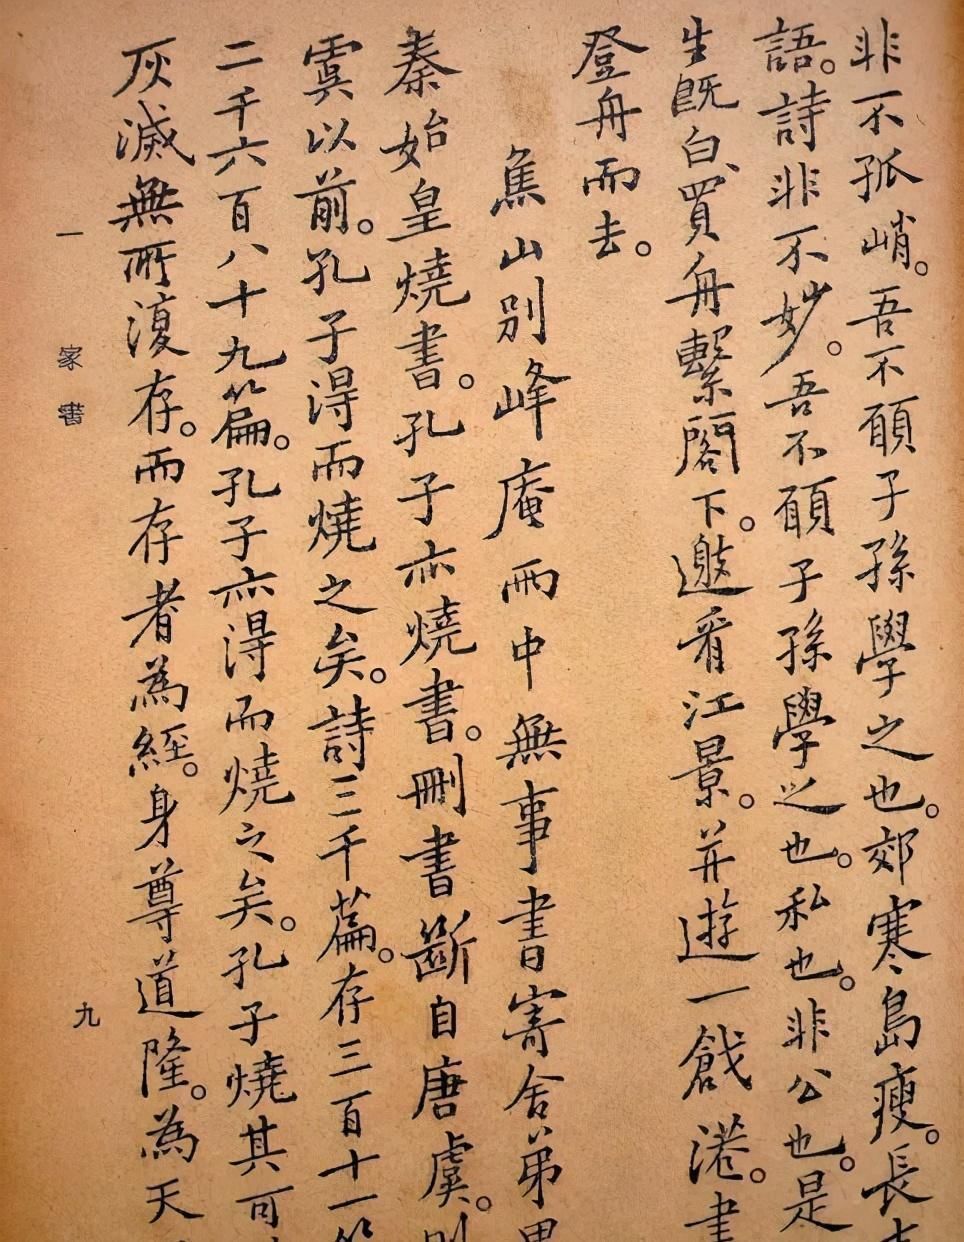 非不孤峭。吾不願子孫學之也。郊寒島瘦。長吉
語。詩非不妙。吾不願子孫學之也。私也。非公也。是
生既白、買舟繫閣下。邀看江景。并遊一戧港。書
登舟而去。
焦山別峰庵雨中無事書寄舍弟墨
秦始皇燒書。孔子亦燒書。刪書斷自唐虞。則
虞以前。孔子得而燒之矣。詩三千篇。存三百十一篇
二千六百八十九篇。孔子亦得而燒之矣。孔子燒其可
灰滅無所復存。而存者為經。身尊道隆。為天
一 家書 九